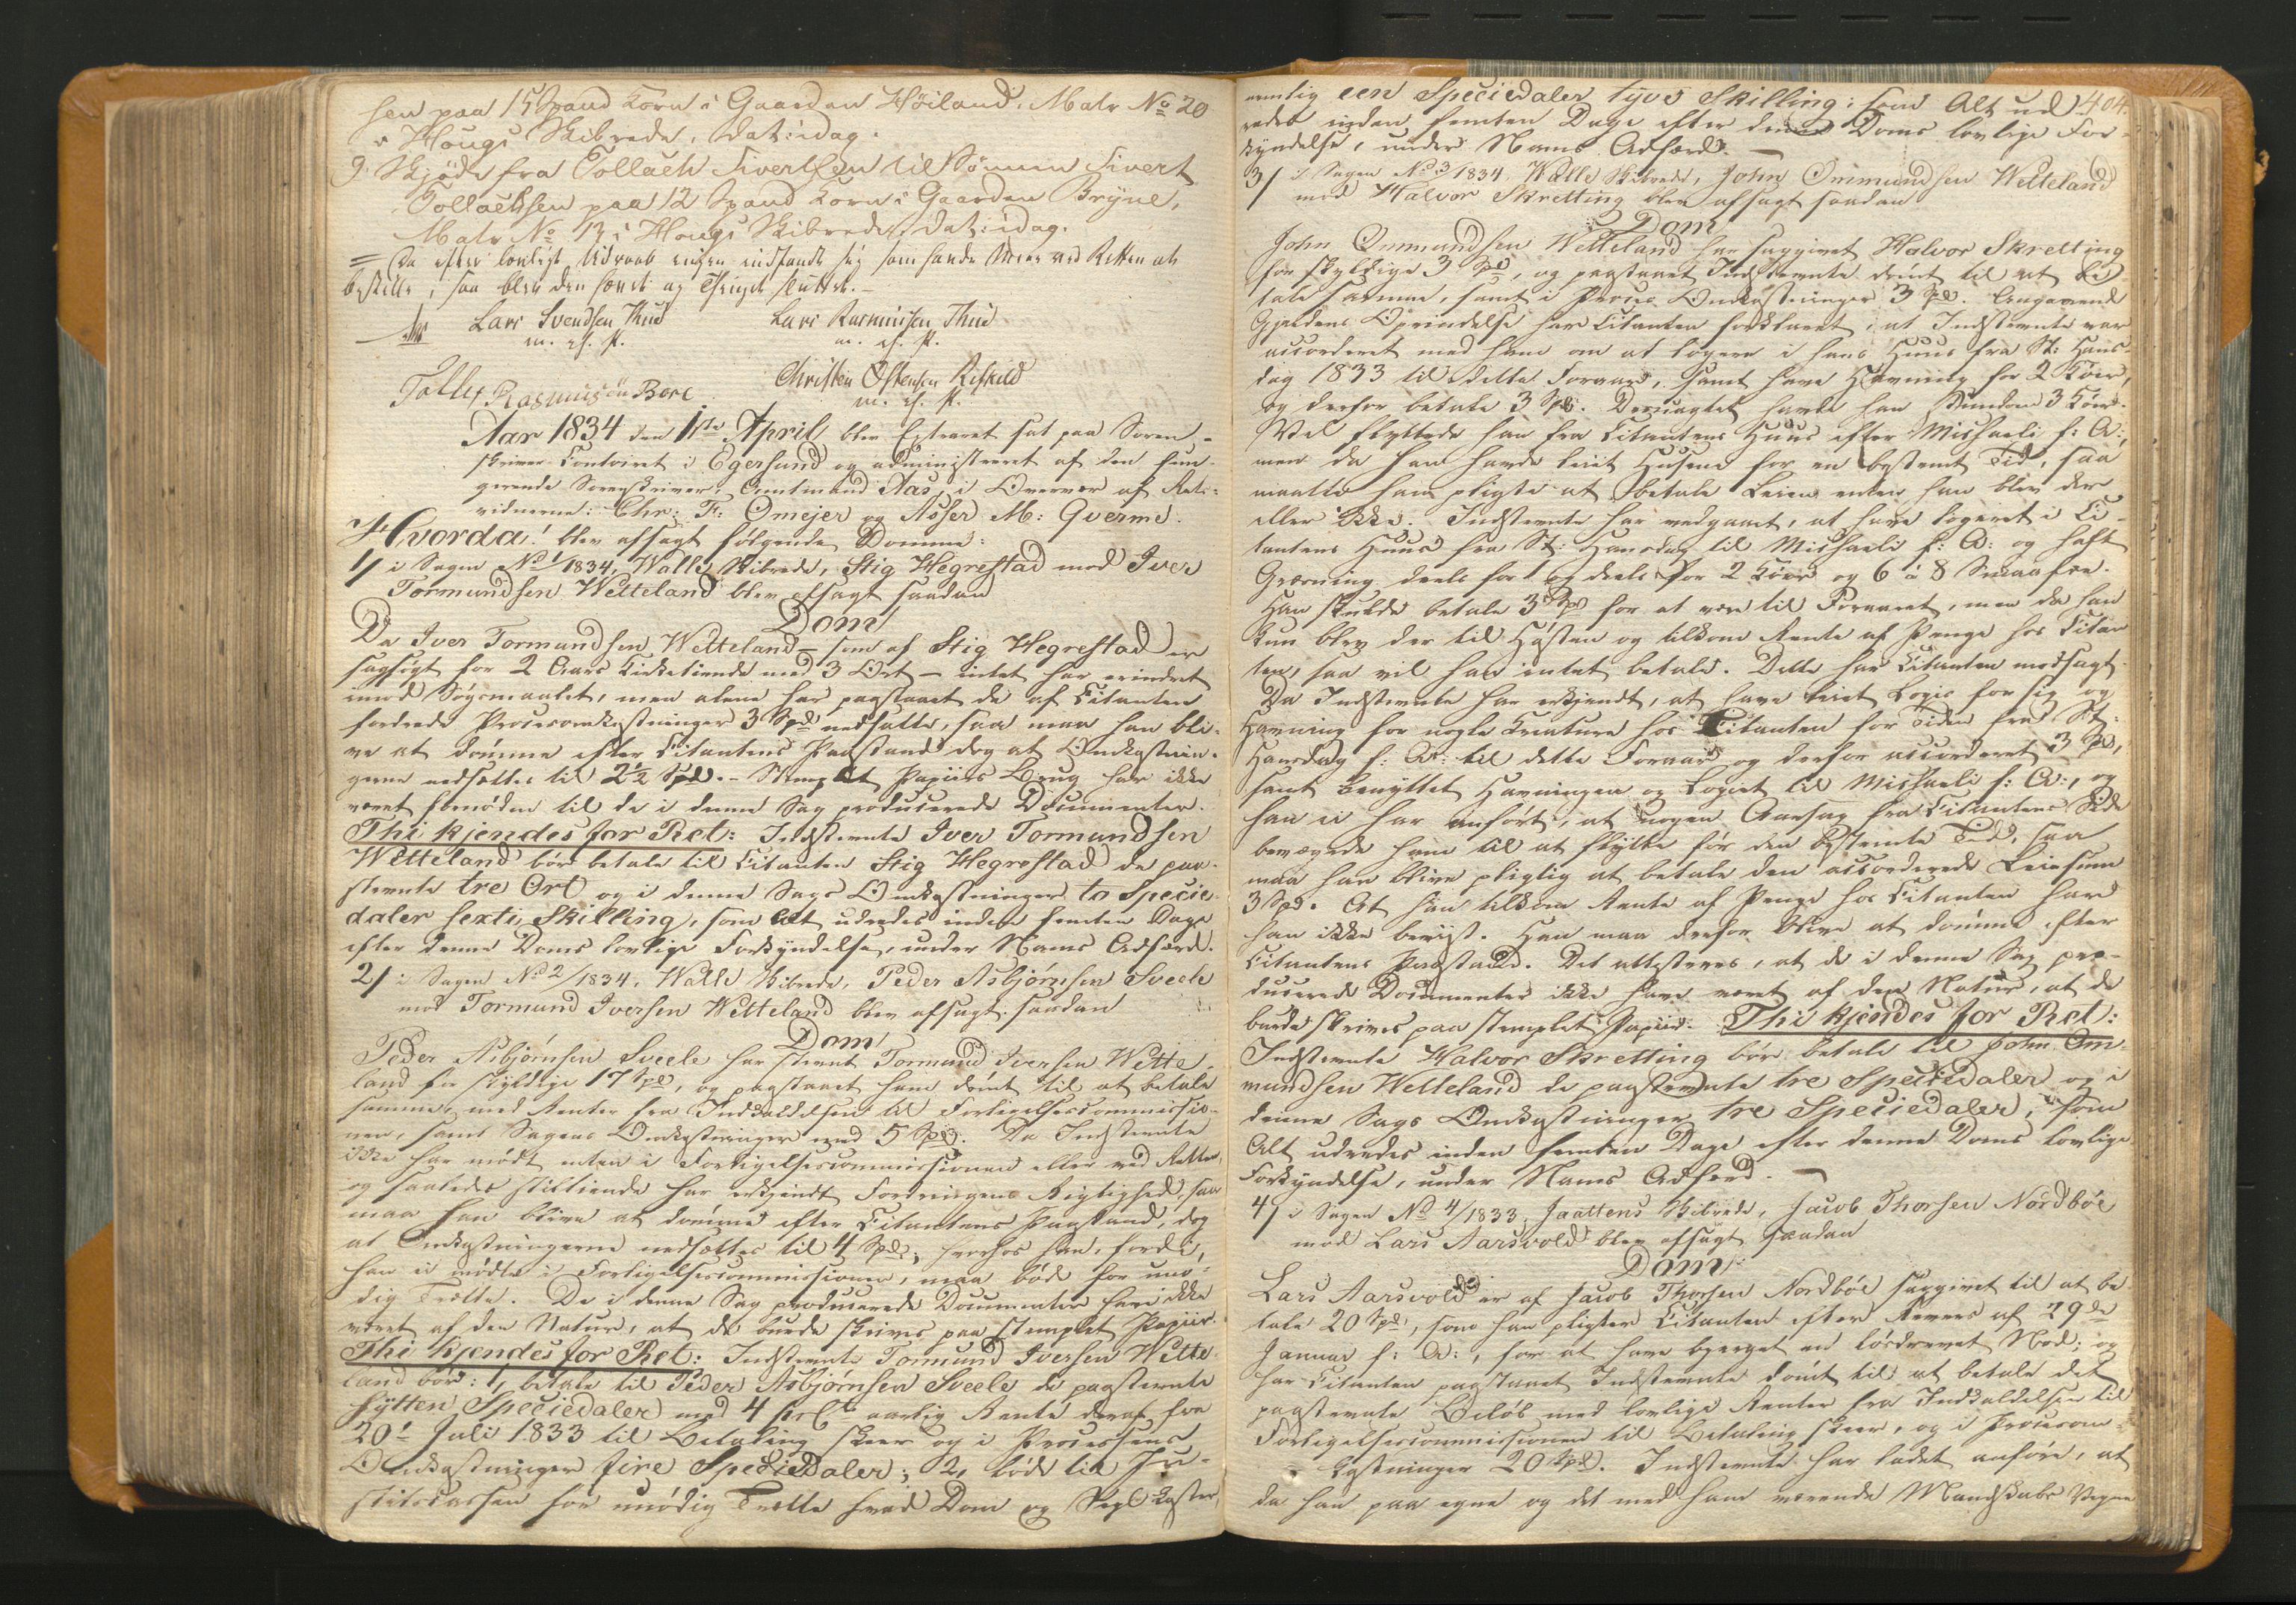 sen paa 15 Spand Korn i Gaarden Höiland, Matr No 20
i Hougs Skibrede, dat: idag.
9. Skjöde fra Tollach Sivertsen til Sönnen Sivert
Tollachsen paa 12 Spand Korn i Gaarden Bryne,
Matr No 13 i Hougs Skibrede, dat: idag.
= Da efter lovligt Udraab ingen indfandt sig som havde Mere ved Retten at
bestille, saa blev den hævet og Thinget sluttet. -
Lars Svendsen Thu Lars Rasmussen Thu
m. p. P. m. p. P.
Tollef Rasmusøn Bore Christen Ostensen Refsnes
m. p. P.
Aar 1834 den 1ste April blev Extraret sat paa Soren-
skriver-Contoiret i Egersund og administreret af den fun-
gerende Sorenskriver, Amtmand Aas, i Overvær af Rets-
vidnerne: Chr: F: Omejer og Asser M: Qverme.
Hvorda! blev afsagt følgende Domme:
1/ i Sagen No 1/1834, Walle Skibrede, Stig Hegrestad mod Iver
Tormundsen Wetteland blev afsagt saadan
Dom
Da Iver Tormundsen Wetteland - som af Stig Hegrestad er
sagsögt for 2 Aars Kirketiende med 3 Ort - intet har erindret
imod Sögsmaalet, men alene har paastaaet de af Citanten
fordrede Procesomkostninger 3 Spd nedsatte, saa maa han bli-
ve at dömme efter Citantens Paastand dog at Omkostnin-
gerne nedsættes til 2½ Spd. - Stemplet Papiirs Brug har ikke
været fornöden til de i denne Sag producerede Documenter.
Thi kjendes for Ret: Indstevnte Iver Tormundsen
Wetteland bör betale til Citanten Stig Hegrestad de paa-
stevnte tre Ort og i denne Sags Omkostninger to Specie-
daler sexti Skilling, som Alt udredes inden femten Dage
efter denne Doms lovlige Forkyndelse, under Nams Adfærd.
2/ i Sagen No 2/1834, Walle Skibrede, Peder Asbjörnsen Sveele
mod Tormund Iversen Wetteland blev afsagt saadan
Dom
Peder Asbjörnsen Sveele har stevnt Tormund Iversen Wette-
land for skyldige 17 Spd, og paastaaet ham dömt til at betale
samme, med Renter fra Indkaldelsen til Forligelsescommissio-
nen, samt Sagens Omkostninger med 5 Spd. Da Indstevnte
ikke har mödt enten i Forligelsescommissionen eller ved Retten,
og saaledes stiltiende har erkjendt Fordringens Rigtighed, saa
maa han blive at dömme efter Citantens Paastand, dog
at Omkostningerne nedsættes til 4 Spd; hvorhos han, fordi
han ei mödte i Forligelsescommissionen, maa böde for unö-
dig Trætte. De i denne Sag producerede Documenter have ikke
været af den Natur, at de burde skrives paa stemplet Papiir.
Thi kjendes for Ret: Indstevnte Tormund Iversen Wette-
land bör: 1, betale til Peder Asbjörnsen Sveele de paastevnte
sytten Speciedaler med 4 prCt aarlig Rente deraf fra
20de Juli 1833 til Betaling skeer og i Processens
Omkostninger fire Speciedaler; 2, böde til Ju-
stitscassen for unödig Trætte hvad Dom og Segl koster,
nemlig een Speciedaler tyve Skilling; som Alt ud- 404.
redes inden femten Dage efter denne Doms lovlige For-
kyndelse, under Nams Adfærd. -
3/ i Sagen No 3/1834, Walle Skibrede, John Ommundsen Wetteland
mod Halvor Skretting blev afsagt saadan
Dom
John Ommundsen Wetteland har saggivet Halvor Skretting
for skyldige 3 Spd, og paastaaet Indstevnte dömt til at be-
tale samme, samt i Proces Omkostninger 3 Spd. Angaaende
Gjældens Oprindelse har Citanten forklaret, at Indstevnte var
accorderet med ham om at logere i hans Huus fra St: Hans-
dag 1833 til dette Foraar, samt have Havning for 2 Köer,
og derfor betale 3 Spd. Desuagtet havde han stundom 3 Köer.
Vel flyttede han fra Citantens Huus efter Michaeli f: A:,
men da han havde leiet Husene for en bestemt Tid, saa
maatte han pligte at betale Leien enten han blev der
eller ikke. Indstevnte har vedgaaet, at have logeret i Ci-
tantens Huus fra St: Hansdag til Michaeli f: A: og haft
Græsning deels for 1 og deels for 2 Köer og 6 à 8 Smaafæe.
Han skulde betale 3 Spd for at være til Foraaret, men da han
kun blev der til Hösten og tilkom Rente af Penge hos Citan-
ten, saa vil han intet betale. Dette har Citanten modsagt.
Da Indstevnte har erkjendt, at have leiet Logis for sig og
Havning for nogle Creature hos Citanten for Tiden fra St:
Hansdag f: A: til dette Foraar og derfor accorderet 3 Spd,
samt benyttet Havningen og Logiet til Michaeli f: A:, og
han ei har anfört, at nogen Aarsag fra Citantens Side
bevægede ham til at flytte för den bestemte Tid, saa
maa han blive pligtig at betale den accorderede Leiesum
3 Spd. At han tilkom Rente af Penge hos Citanten har
han ikke beviist. Han maa derfor blive at dömme efter
Citantens Paastand. Det attesteres, at de i denne Sag pro-
ducerede Documenter ikke have været af den Natur, at de
burde skrives paa stemplet Papiir. Thi kjendes for Ret:
Indstevnte Halvor Skretting bör betale til John Om-
mundsen Wetteland de paastevnte tre Speciedaler og i
denne Sags Omkostninger tre Speciedaler, som
Alt udredes inden femten Dage efter denne Doms lovlige
Forkyndelse, under Nams Adfærd. -
4/ i Sagen No 4/1833, Jaattens Skibrede, Jacob Thorsen Nordböe
mod Lars Aarsvold blev afsagt saadan
Dom
Lars Aarsvold er af Jacob Thorsen Nordböe saggivet til at be-
tale 20 Spd, som han pligter Citanten efter Revers af 29de
Januar f: A:, for at have bjerget en lösdrevet Nod; og
har Citanten paastaaet Indstevnte dömt til at betale det
paastevnte Belöb med lovlige Renter fra Indkaldelsen til
Forligelsescommissionen til Betaling skeer, og i Procesom-
kostninger 20 Spd. Indstevnte har ladet anföre, at
da han paa egne og det med ham værende Mandskabs Vegne